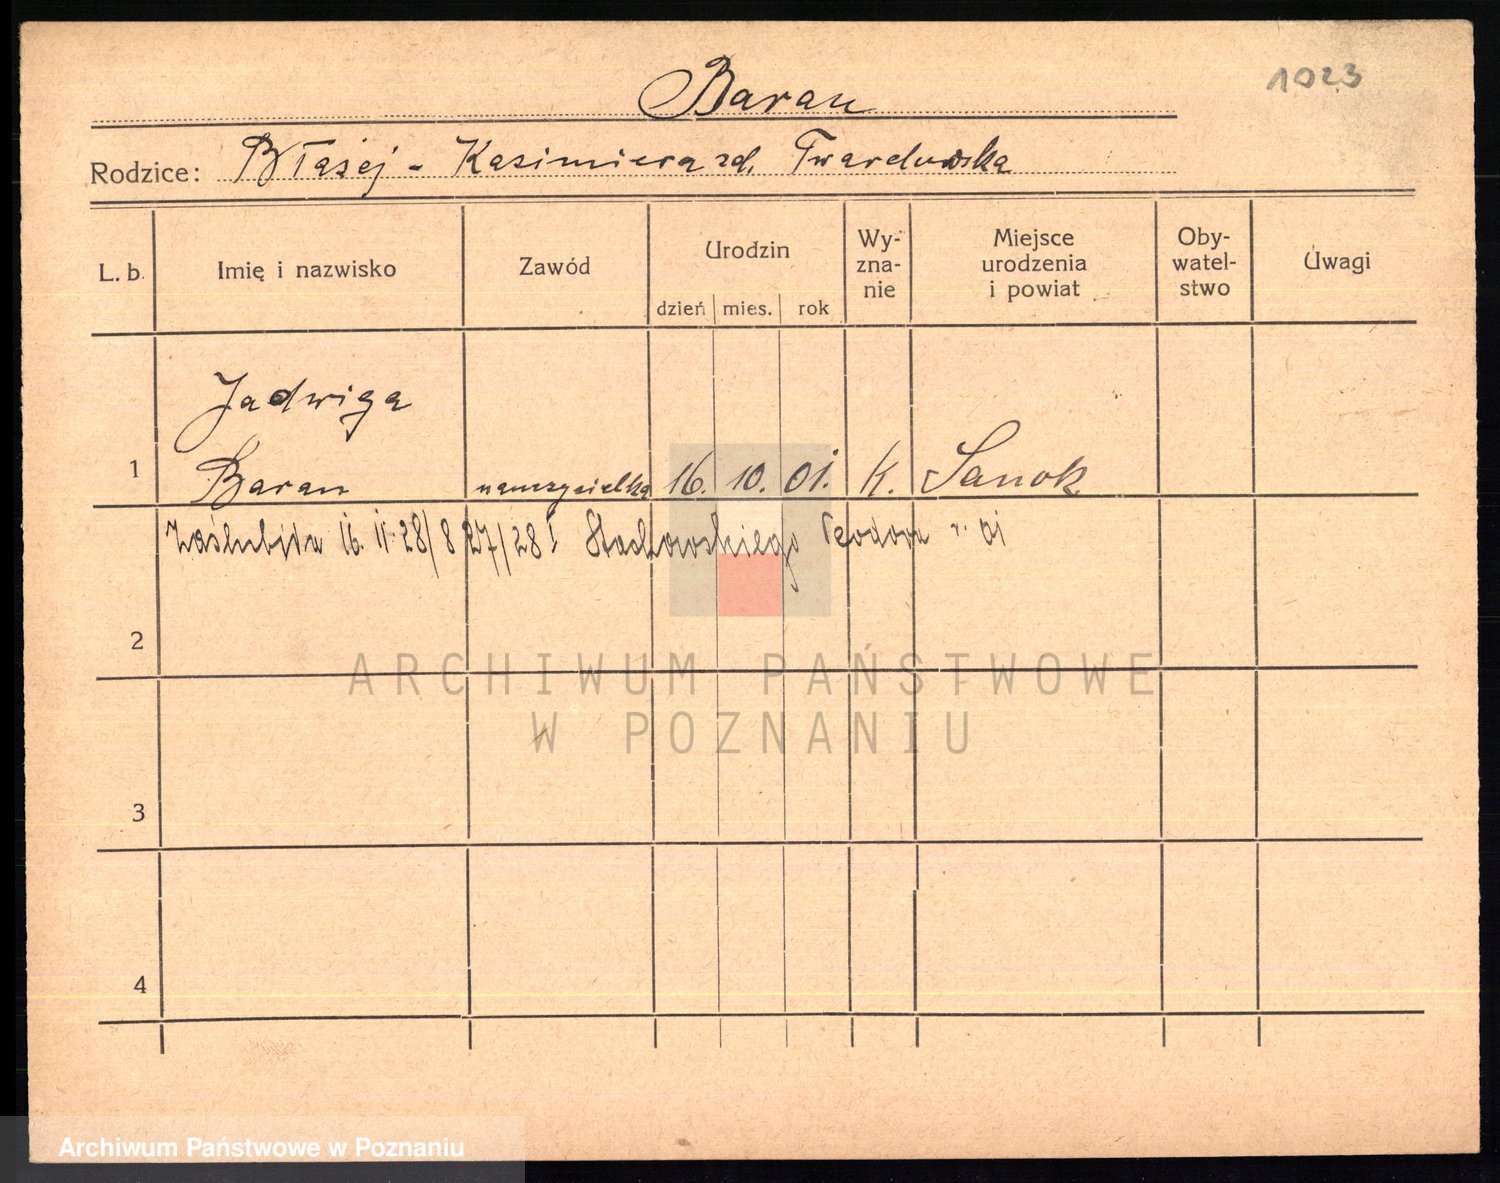 1023
Baran
Rodzice: Błażej - Kazimiera zd. Twardowska
L. b. Imię i nazwisko Zawód Urodzin Wy- zna- nie Miejsce urodzenia i powiat Oby- watel- stwo Uwagi
dzień mies. rok
Jadwiga
1 Baran nauczycielka 16. 10. 01. k. Sanok
Zaślubiła 16. 11. 28/8 27/28 Stachowskiego Teodora r. 01
2
ARCHIWUM PAŃSTWOWE
W POZNANIU
3
4
Archiwum Państwowe w Poznaniu